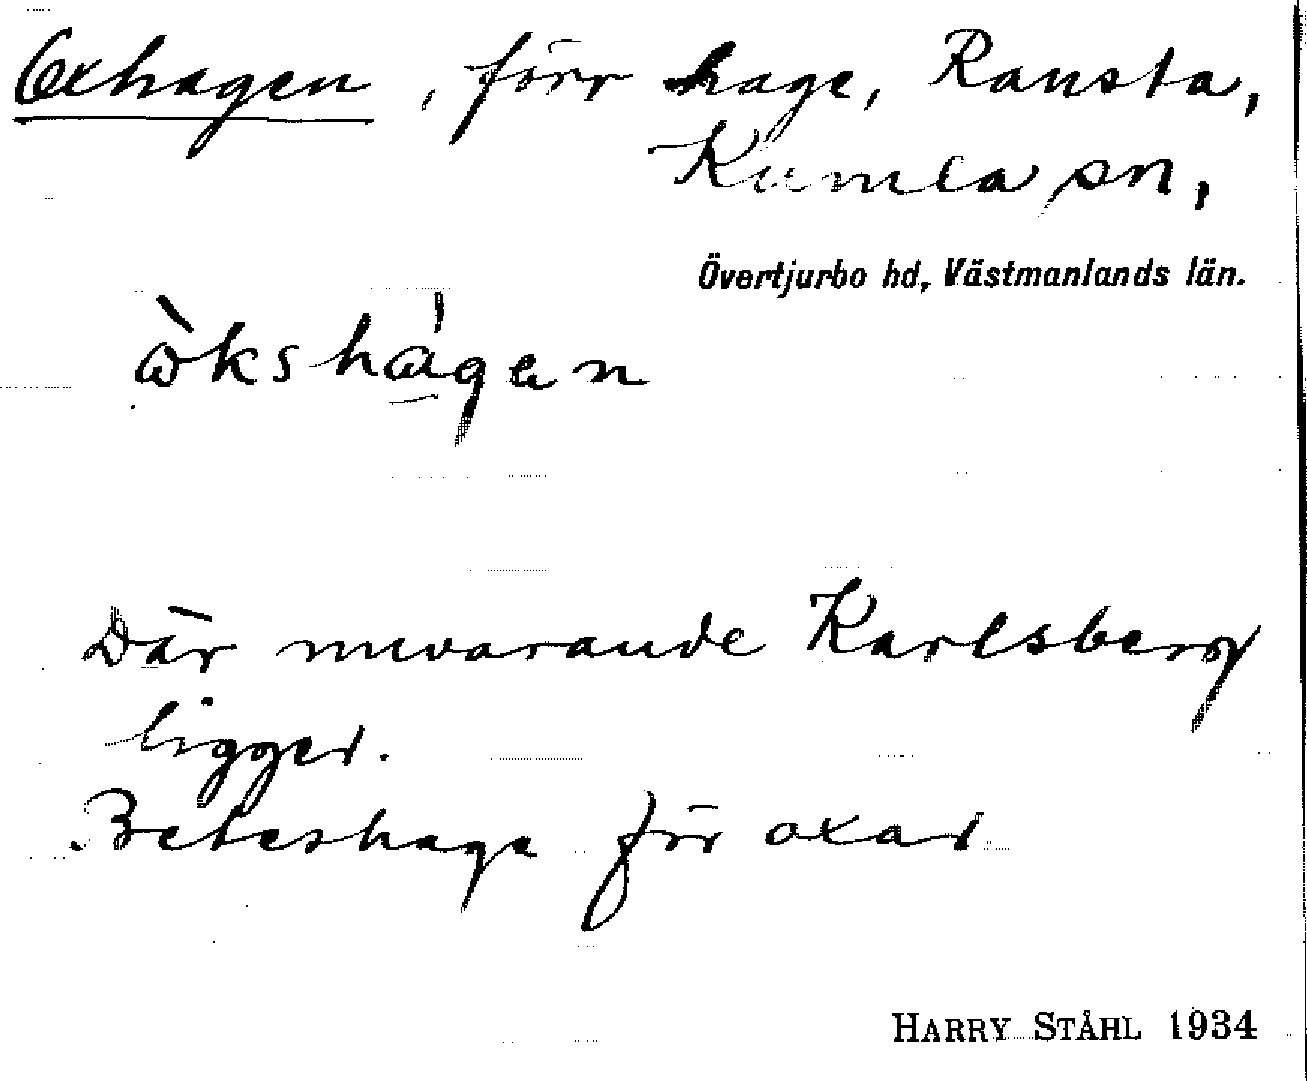 Oxhagen, förr hage, Ransta,
Kumla sn,
Övertjurbo hd, Västmanlands län.
ò̀kshágen
Där nuvarande Karlsberg
ligger.
Beteshage för oxar
HARRY STÅHL 1934